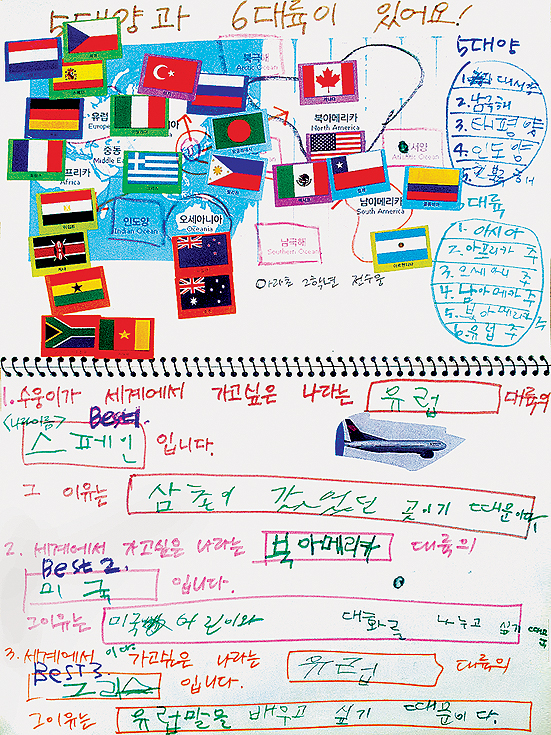 5대양과 6대륙이 있어요!
북극해
Arctic Ocean
유럽
Europe
중동
Middle East
아프리카
Africa
인도양
Indian Ocean
오세아니아
Oceania
북아메리카
North America
대서양
남아메리카
South America
남극해
Southern Ocean
2학년 전수웅
5대양
1. 대서양
2. 남극해
3. 태평양
4. 인도양
5. 북극해
대륙
1. 아시아
2. 아프리카 주
3. 오세아니 주
4. 남아메카 주
5. 북아메리카 주
6. 유럽 주
1. 수웅이가 세계에서 가고싶은 나라는 유럽 대륙의
<나라이름> Best1.
스페인 입니다.
그 이유는 삼촌이 갔었던 곳이기 때문이다.
2. 세계에서 가고싶은 나라는 북아메리카 대륙의
Best 2.
미국 입니다.
그이유는 미국 어린이와 대화를 나누고 싶기
3. 세계에서 가고싶은 나라는 유럽 대륙의
Best 3.
그리스 입니다.
그이유는 유럽말을 배우고 싶기 때문이다.